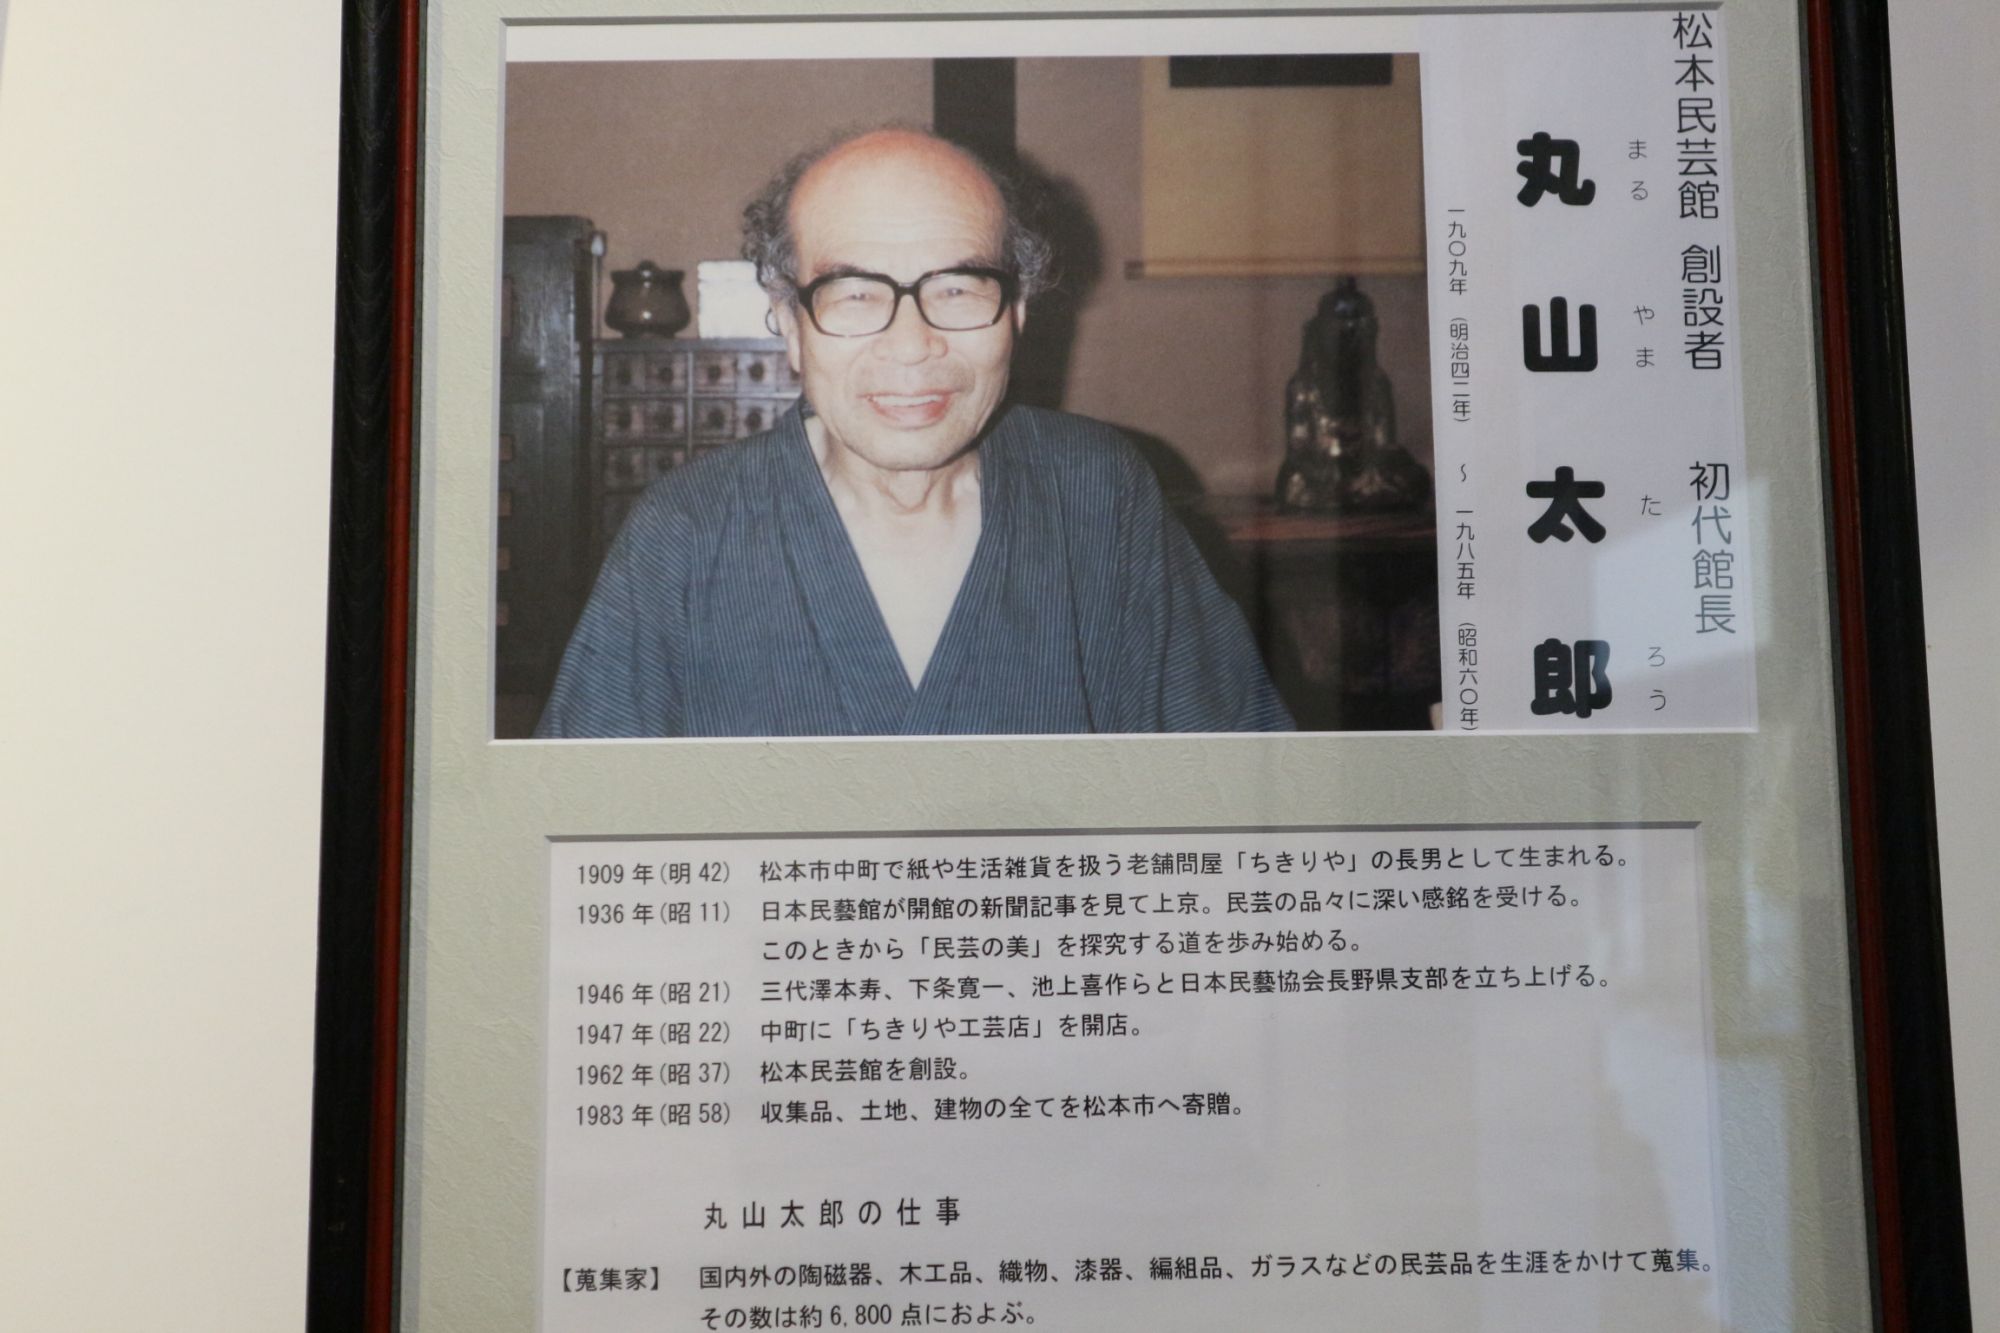 松本民芸館 創設者 初代館長
まるやまたろう
丸山太郎
一九〇九年(明治四二年)～一九八五年(昭和六〇年)
1909年(明42) 松本市中町で紙や生活雑貨を扱う老舗問屋「ちきりや」の長男として生まれる。
1936年(昭11) 日本民藝館が開館の新聞記事を見て上京。民芸の品々に深い感銘を受ける。
このときから「民芸の美」を探究する道を歩み始める。
1946年(昭21) 三代澤本寿、下条寛一、池上喜作らと日本民藝協会長野県支部を立ち上げる。
1947年(昭22) 中町に「ちきりや工芸店」を開店。
1962年(昭37) 松本民芸館を創設。
1983年(昭58) 収集品、土地、建物の全てを松本市へ寄贈。
丸山太郎の仕事
【蒐集家】 国内外の陶磁器、木工品、織物、漆器、編組品、ガラスなどの民芸品を生涯をかけて蒐集。
その数は約6,800点におよぶ。